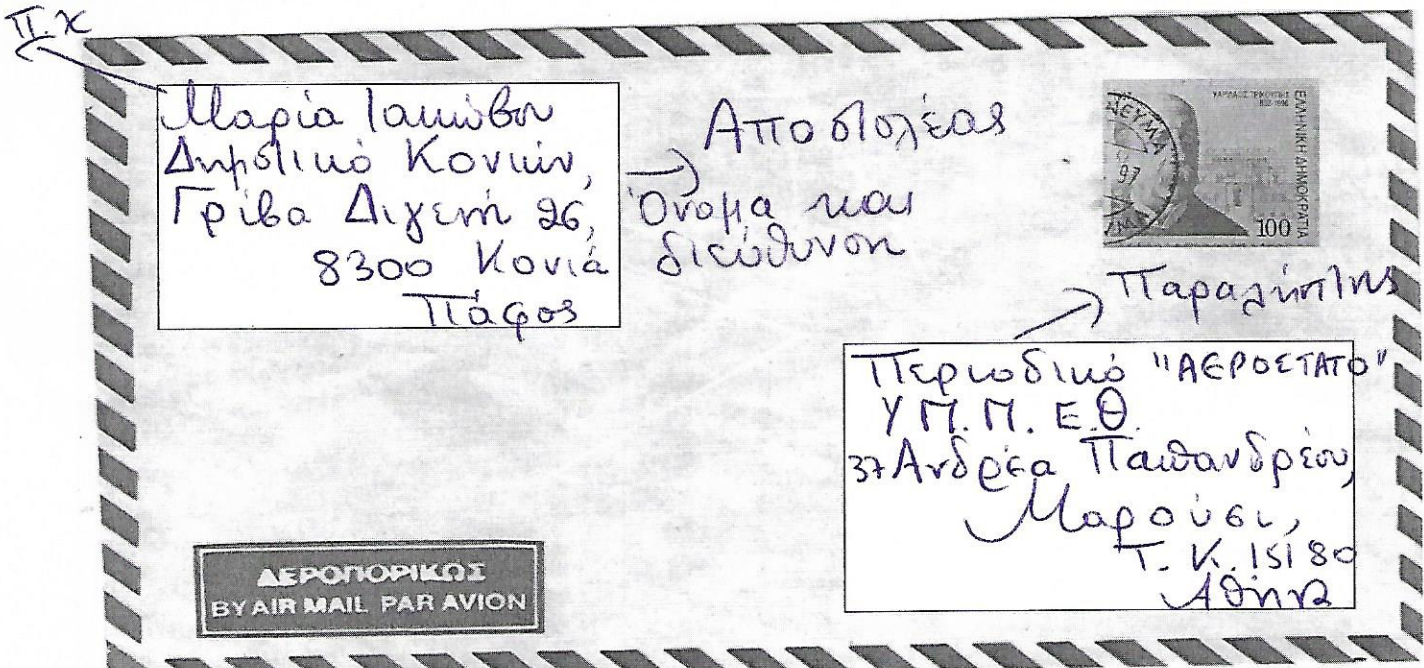 π.χ
Μαρία Ιακώβου
Δημοτικό Κονιών,
Γρίβα Διγενή 26,
8300 Κονιά
Πάφος
Αποστολέας
Όνομα και
διεύθυνση
ΕΛΛΗΝΙΚΗ ΔΗΜΟΚΡΑΤΙΑ
97
100
Παραλήπτης
Περιοδικό "ΑΕΡΟΣΤΑΤΟ"
Υ Π. Π. Ε.Θ.
37 Ανδρέα Παπανδρέου,
Μαρούσι,
Τ. Κ. 15180
Αθήνα
ΑΕΡΟΠΟΡΙΚΩΣ
BY AIR MAIL PAR AVION